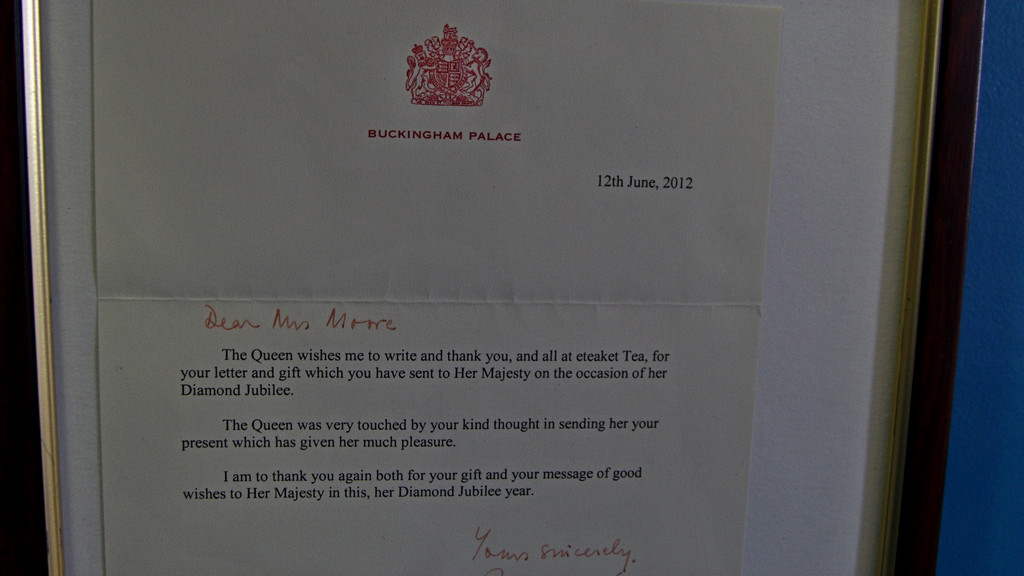 BUCKINGHAM PALACE
12th June, 2012
Dear Mrs Moore
The Queen wishes me to write and thank you, and all at eteaket Tea, for
your letter and gift which you have sent to Her Majesty on the occasion of her
Diamond Jubilee.
The Queen was very touched by your kind thought in sending her your
present which has given her much pleasure.
I am to thank you again both for your gift and your message of good
wishes to Her Majesty in this, her Diamond Jubilee year.
Yours sincerely,